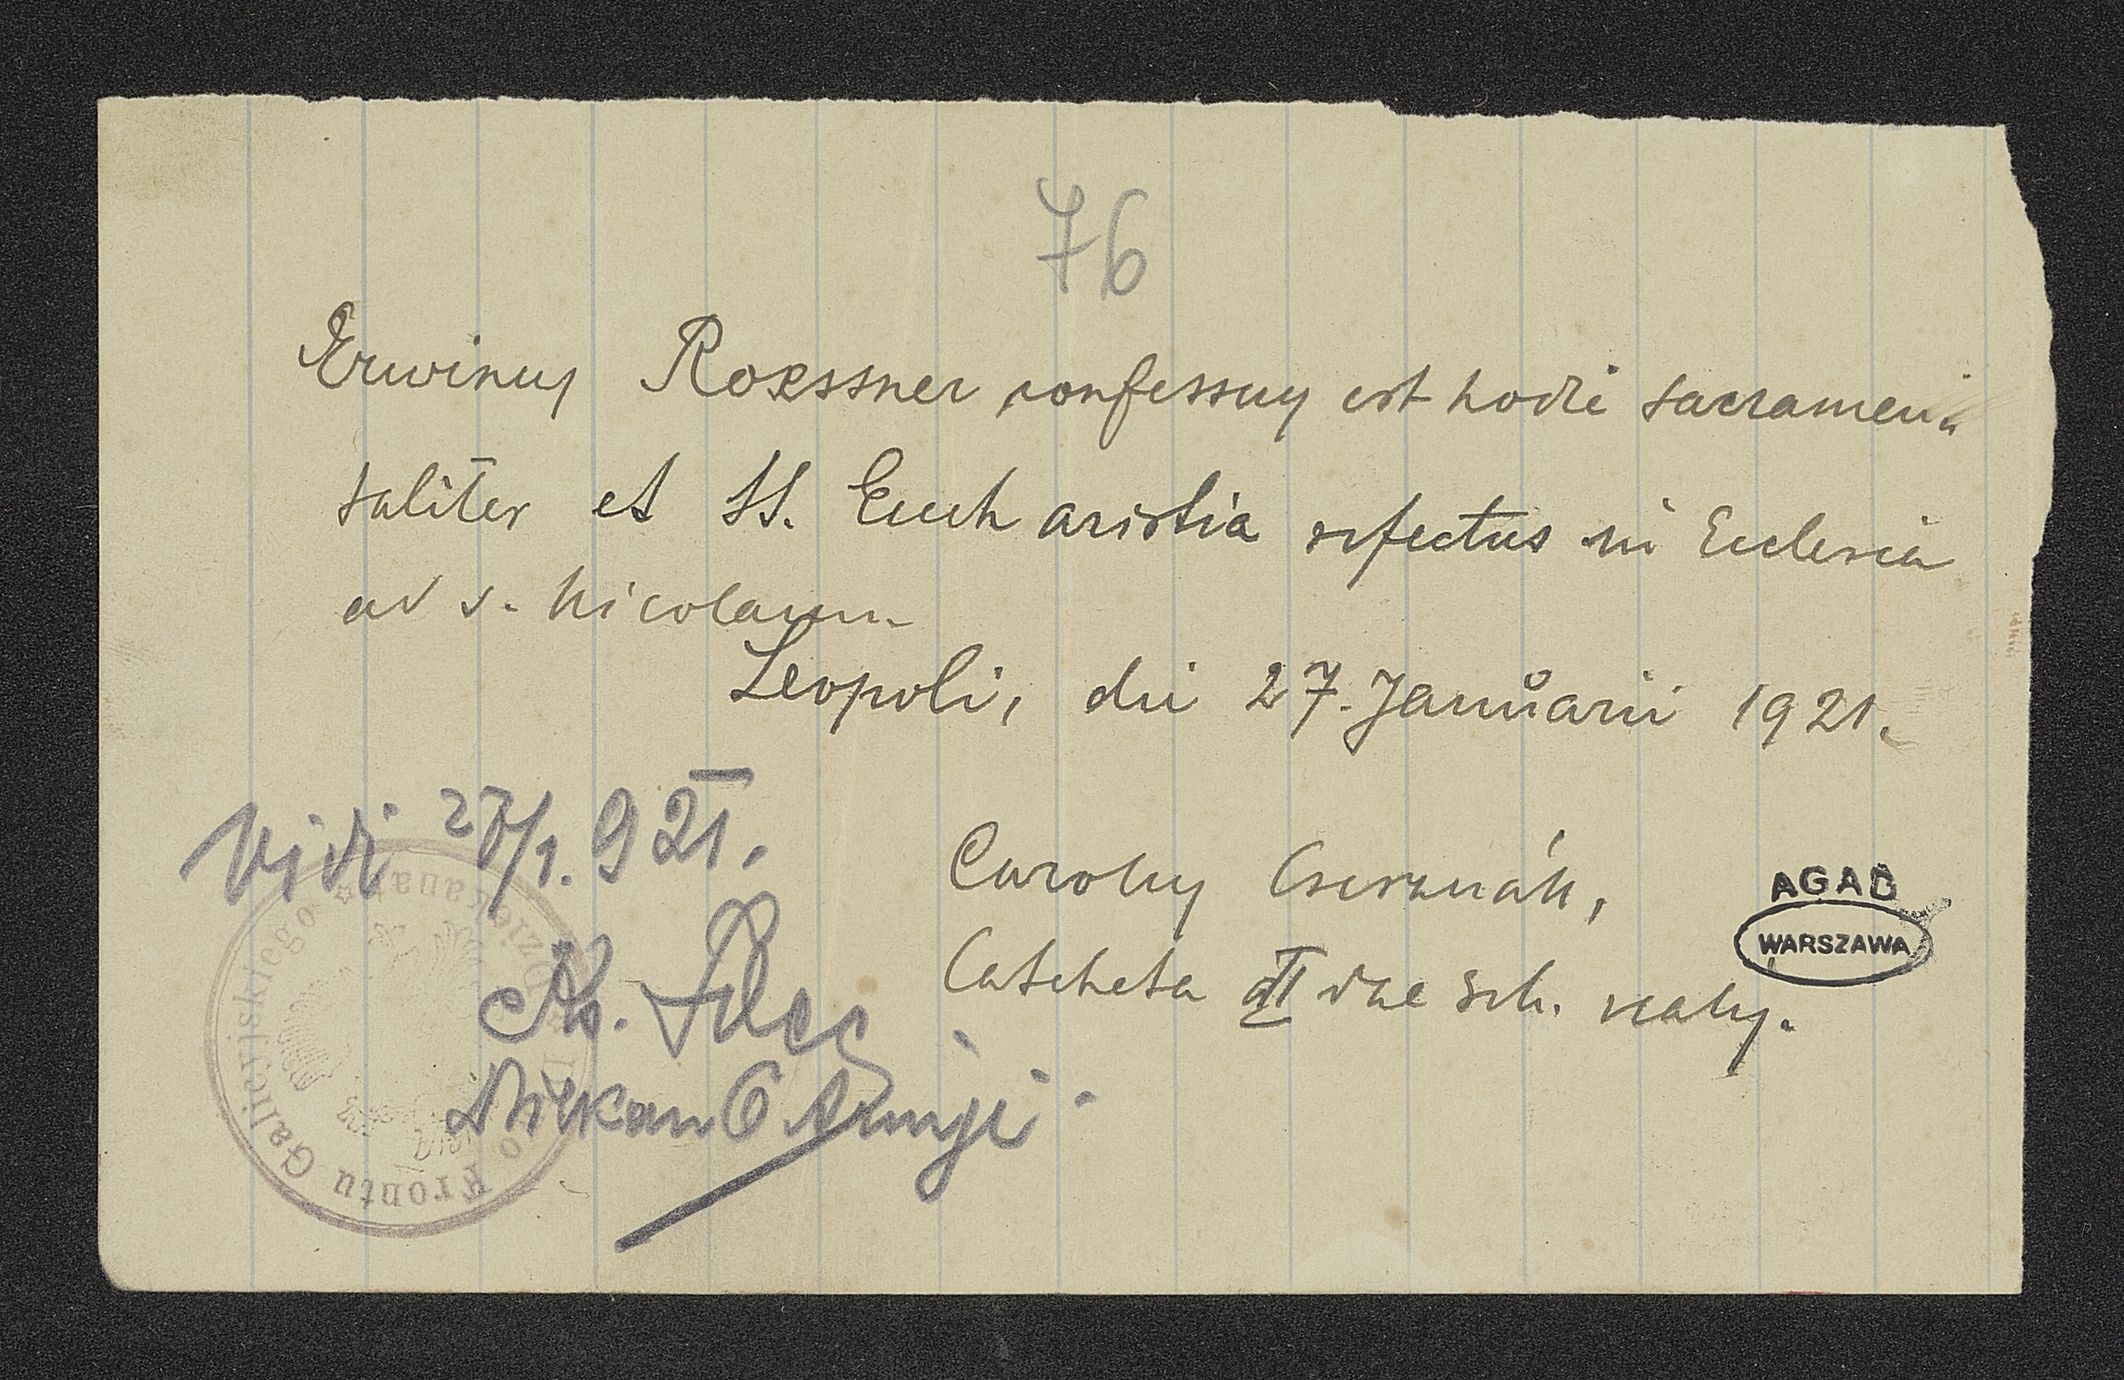 76
Erwinus Roessner confessus est hodie sacramen-
taliter et SS. Eucharistia refectus in Ecclesia
ad s. Nicolaum.
Leopoli, die 27. Januarii 1921.
Vidi 27/1. 921.
Carolus Cserznák,
AGAD
WARSZAWA
Catecheta II dae sch. realis.
Ks.
Dziekan 6 Armji.
Dziekanat
Frontu Galicyjskiego